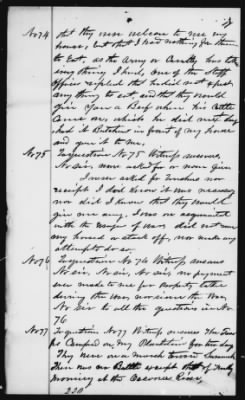 No 74 that they was welcome to use my
house, but that I had nothing for them
to Eat, as the Army or Cavalry has taken
every thing I had, one of the Staff
Officer replied that he did not expect
any thing to eat and that they would
give you a Beef when his Cattle
came on, which he did next day
had it Butchered in front of my house
and gave it to me.
No 75 To question No 75 Witness answers
No Sir, never asked for or none given
I never asked for vouchers nor
receipt I dont Know it was necessary
nor did I know that they would
give me any. I was an acquainted
with the usage of war did not run
my horses or stock off, nor make any
attempt to do so.
No 76 To question No 76 Witness answers
No Sir, No Sir, No Sir, no payment
ever made to me for property taken
during the War nor since the War,
No Sir to all the questions in No
76
No 77 To question No 77 Witness answers The Troops
Camped on my Plantation for the day
They were on a march towards Savannah
There was no Battle except that of Monday
Morning at the Oconee River,
220